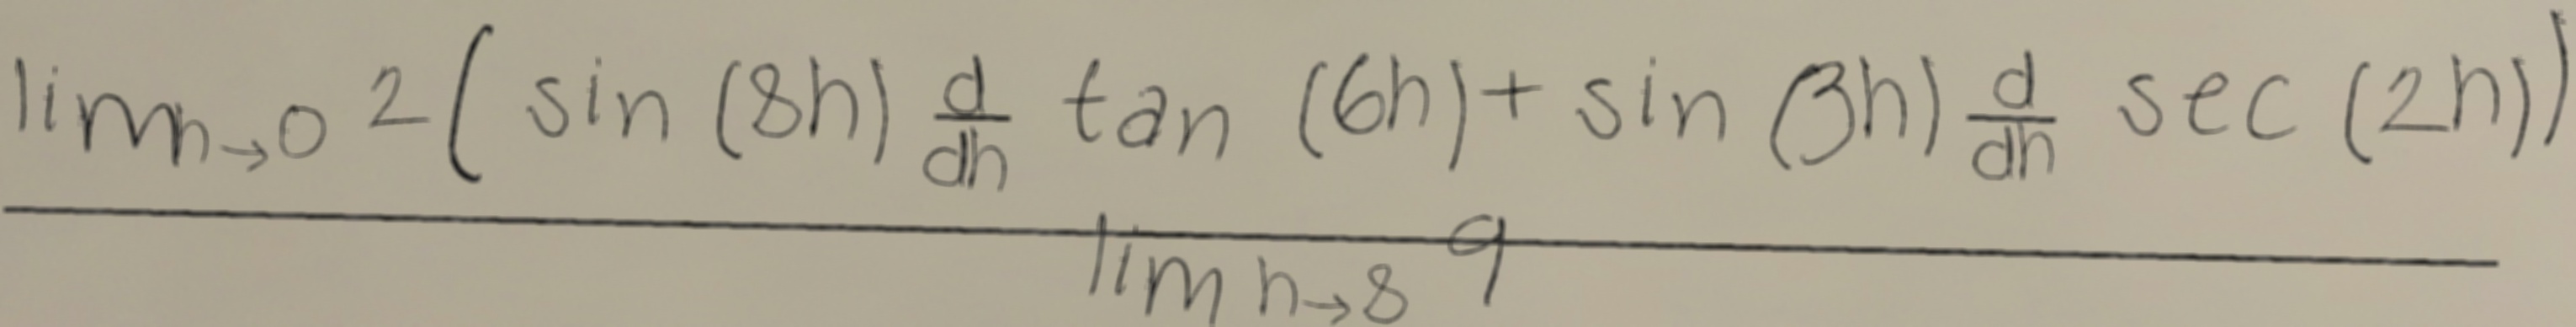 \frac{\lim_{h \to 0} 2 \left( \sin (8h) \frac{d}{dh} \tan (6h) + \sin (3h) \frac{d}{dh} \sec (2h) \right)}{\lim_{h \to 8} 9}